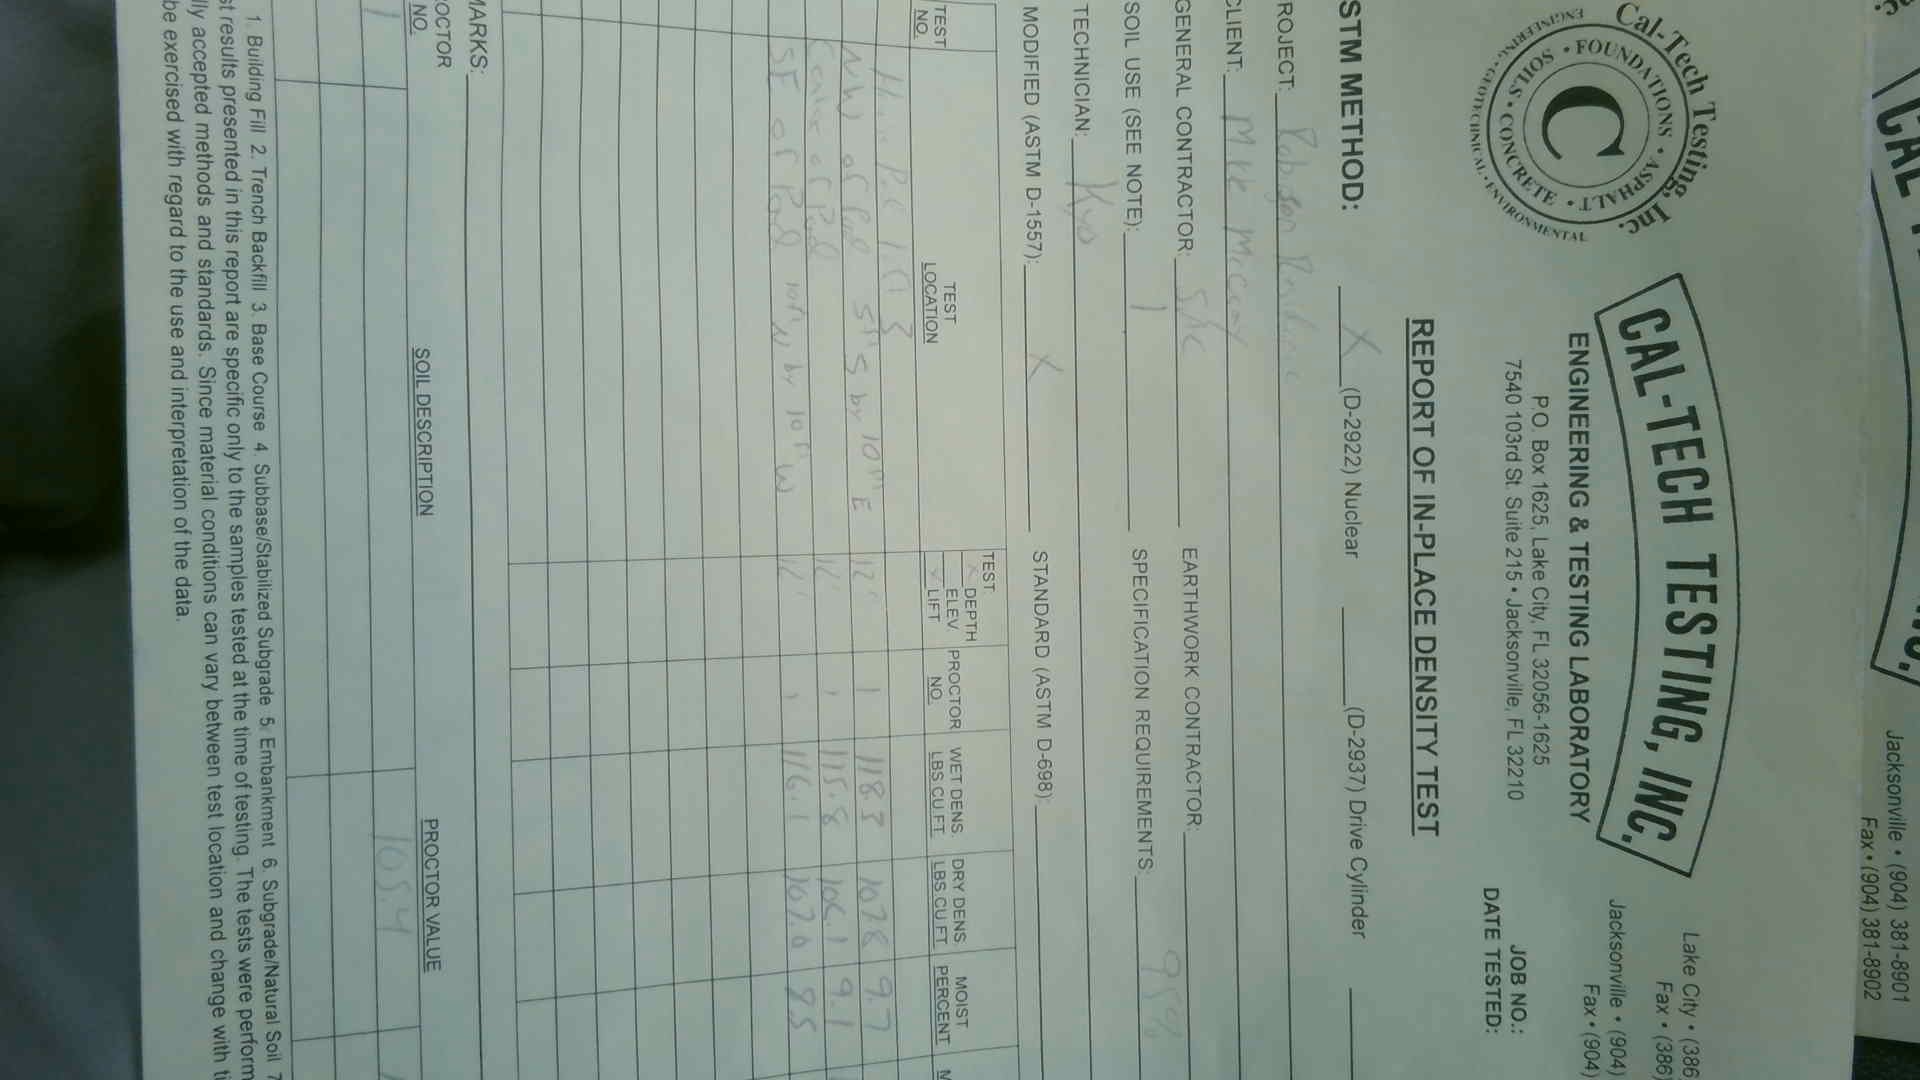 Jacksonville • (904) 381-8901
Fax • (904) 381-8902
Cal-Tech Testing, Inc.
• FOUNDATIONS • ASPHALT • CONCRETE • SOILS
ENGINEERING • GEOTECHNICAL • ENVIRONMENTAL
C
CAL-TECH TESTING, INC.
ENGINEERING & TESTING LABORATORY
P.O. Box 1625, Lake City, FL 32056-1625
7540 103rd St. Suite 215 • Jacksonville, FL 32210
Lake City • (386
Fax • (386)
Jacksonville • (904)
Fax • (904)
JOB NO.:
DATE TESTED:
REPORT OF IN-PLACE DENSITY TEST
STM METHOD: X (D-2922) Nuclear (D-2937) Drive Cylinder
ROJECT:
CLIENT: Mike McCoy
GENERAL CONTRACTOR: EARTHWORK CONTRACTOR:
SOIL USE (SEE NOTE): 1 SPECIFICATION REQUIREMENTS: 95%
TECHNICIAN:
MODIFIED (ASTM D-1557): X STANDARD (ASTM D-698):
TEST NO. TEST LOCATION TEST: DEPTH ELEV. LIFT PROCTOR NO. WET DENS. LBS.CU.FT. DRY DENS. LBS.CU.FT. MOIST PERCENT M
NW of Pad 5ft S by 10ft E 12" 1 118.3 107.8 9.7
Center of Pad 12" 1 115.8 106.1 9.1
SE of Pad 10ft N by 10ft W 12" 1 116.1 107.0 8.5
MARKS:
OCTOR NO. SOIL DESCRIPTION PROCTOR VALUE
1 105.4
1. Building Fill 2. Trench Backfill 3. Base Course 4. Subbase/Stabilized Subgrade 5. Embankment 6. Subgrade/Natural Soil 7
st results presented in this report are specific only to the samples tested at the time of testing. The tests were perform
lly accepted methods and standards. Since material conditions can vary between test location and change with ti
be exercised with regard to the use and interpretation of the data.